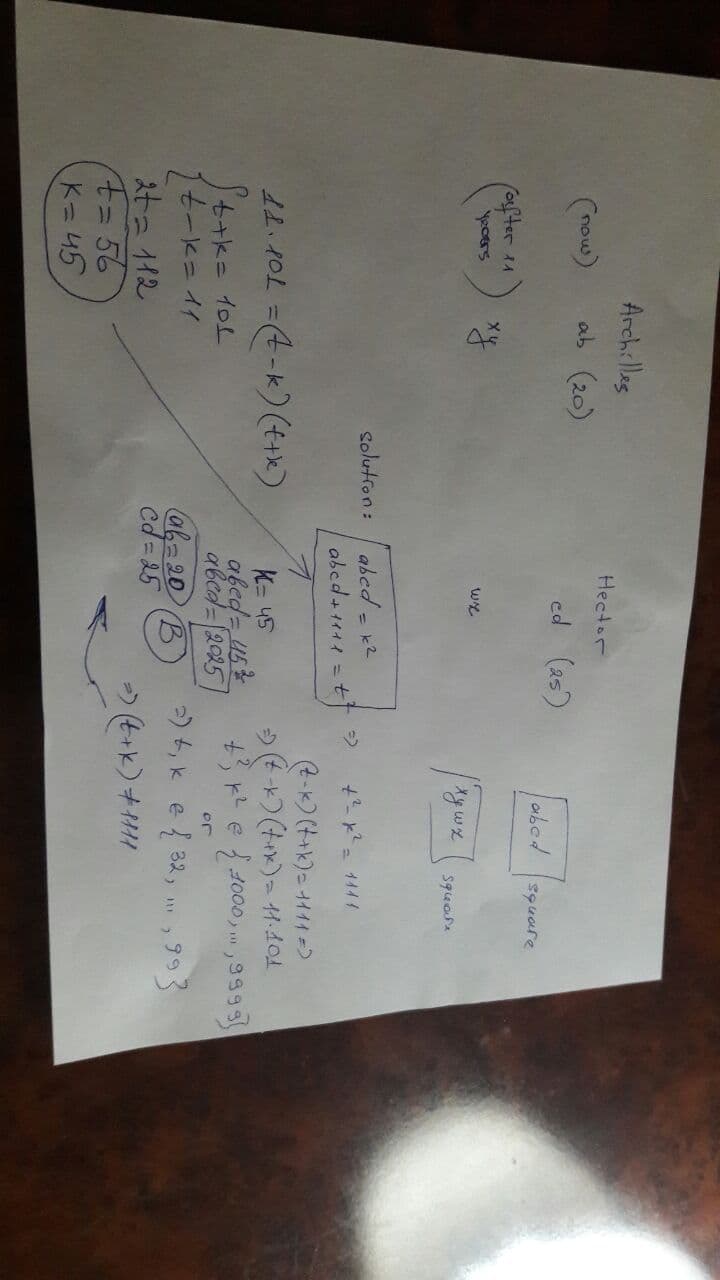 Archilles
Hector
(now) ab (20)
cd (25)
abcd square
(after 11 years) xy
wz
xywz square
solution: abcd = k²
abcd + 1111 = t² => t² - k² = 1111
(t-k)(t+k) = 1111 =>
=> (t-k)(t+k) = 11.101
t², k² ∈ {1000, ..., 9999}
or
=> t, k ∈ {32, ..., 99}
=> (t+k) ≠ 1111
11.101 = (t-k)(t+k)
t+k = 101
t-k = 11
2t = 112
t = 56
k = 45
k = 45
abcd = 45²
abcd = 2025
ab = 20 B
cd = 25